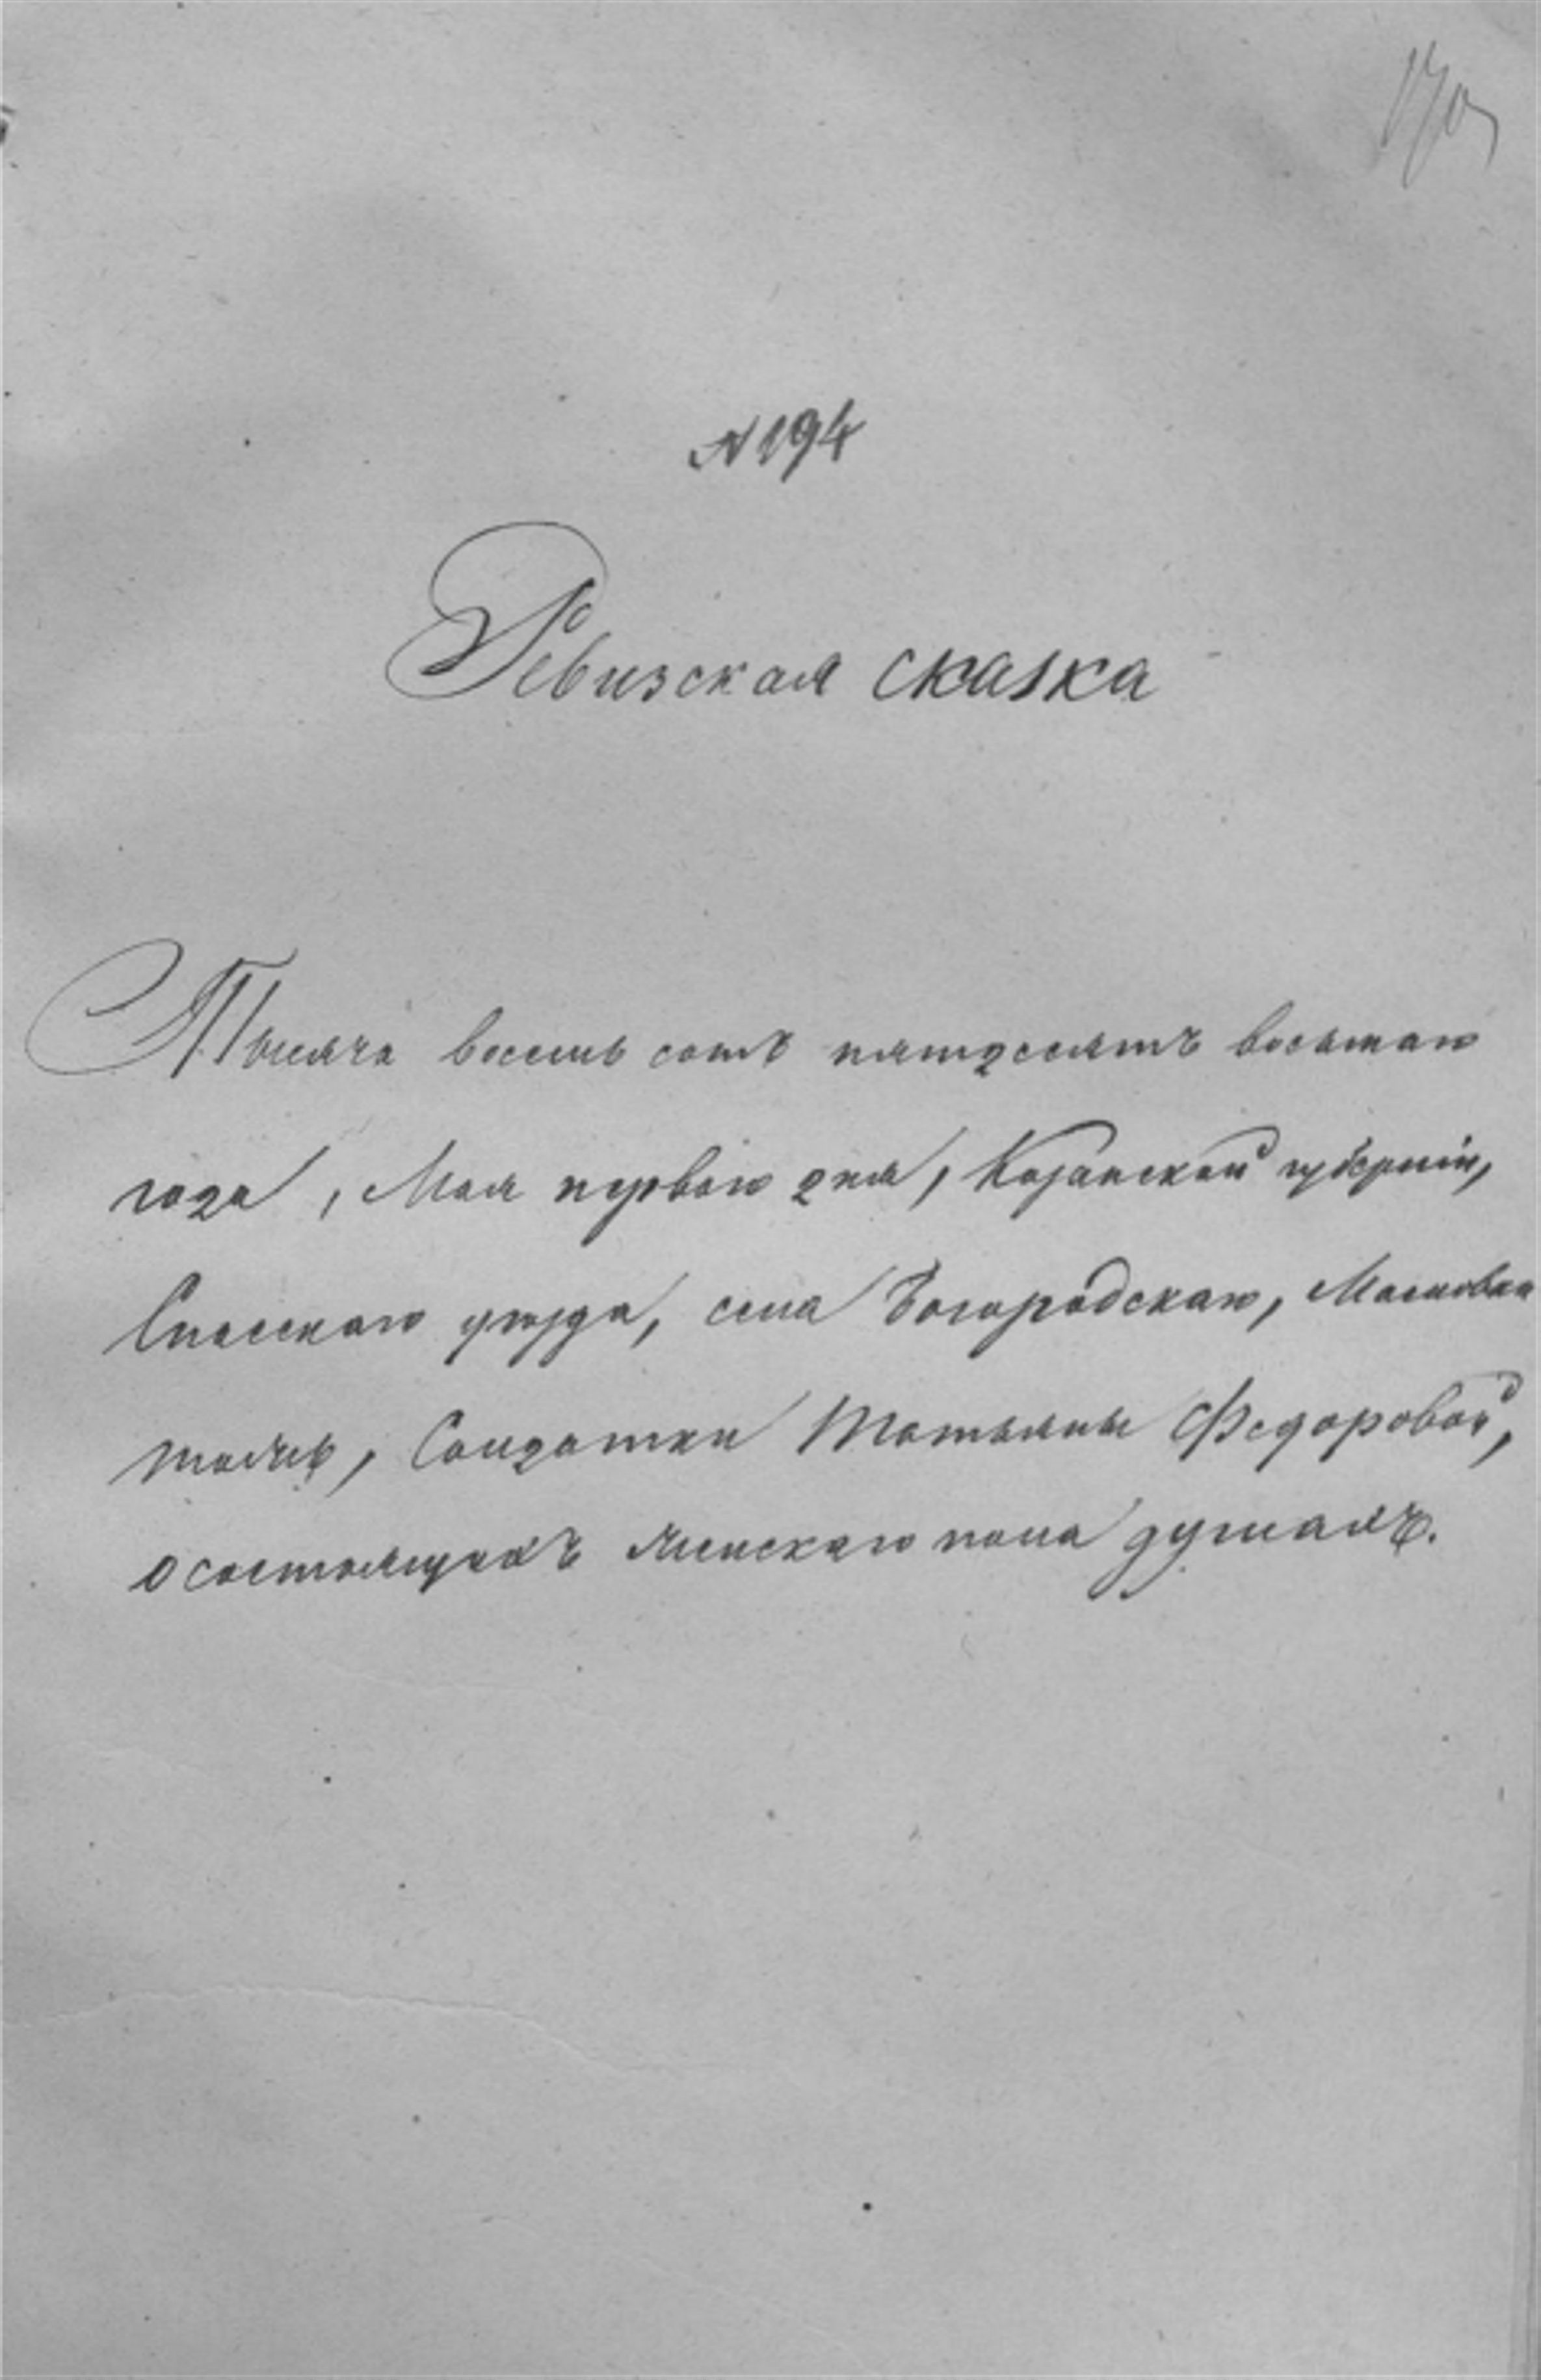 170
№ 194
Ревизская сказка
Тысяча восемь сотъ пятдесятъ восьмаго
года, Мая перваго дня, Казанской губерніи,
Спасскаго уѣзда, села Богородскаго,
тожъ, Солдатки Татьяны Федоровой,
о состоящихъ женскаго пола душахъ.